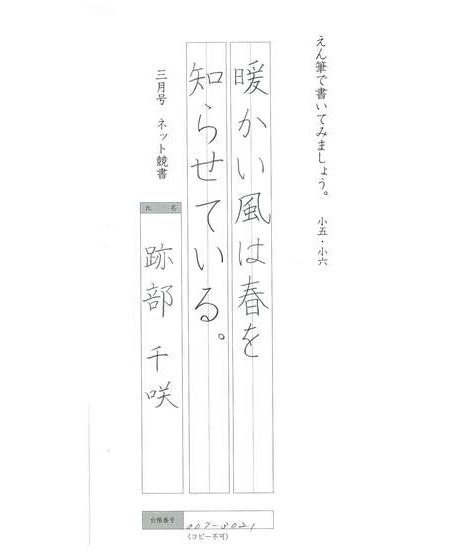 えん筆で書いてみましょう。 小五・小六
暖かい風は春を
知らせている。
三月号 ネット競書
氏 名
跡部 千咲
台帳番号
007-8021
(コピー不可)